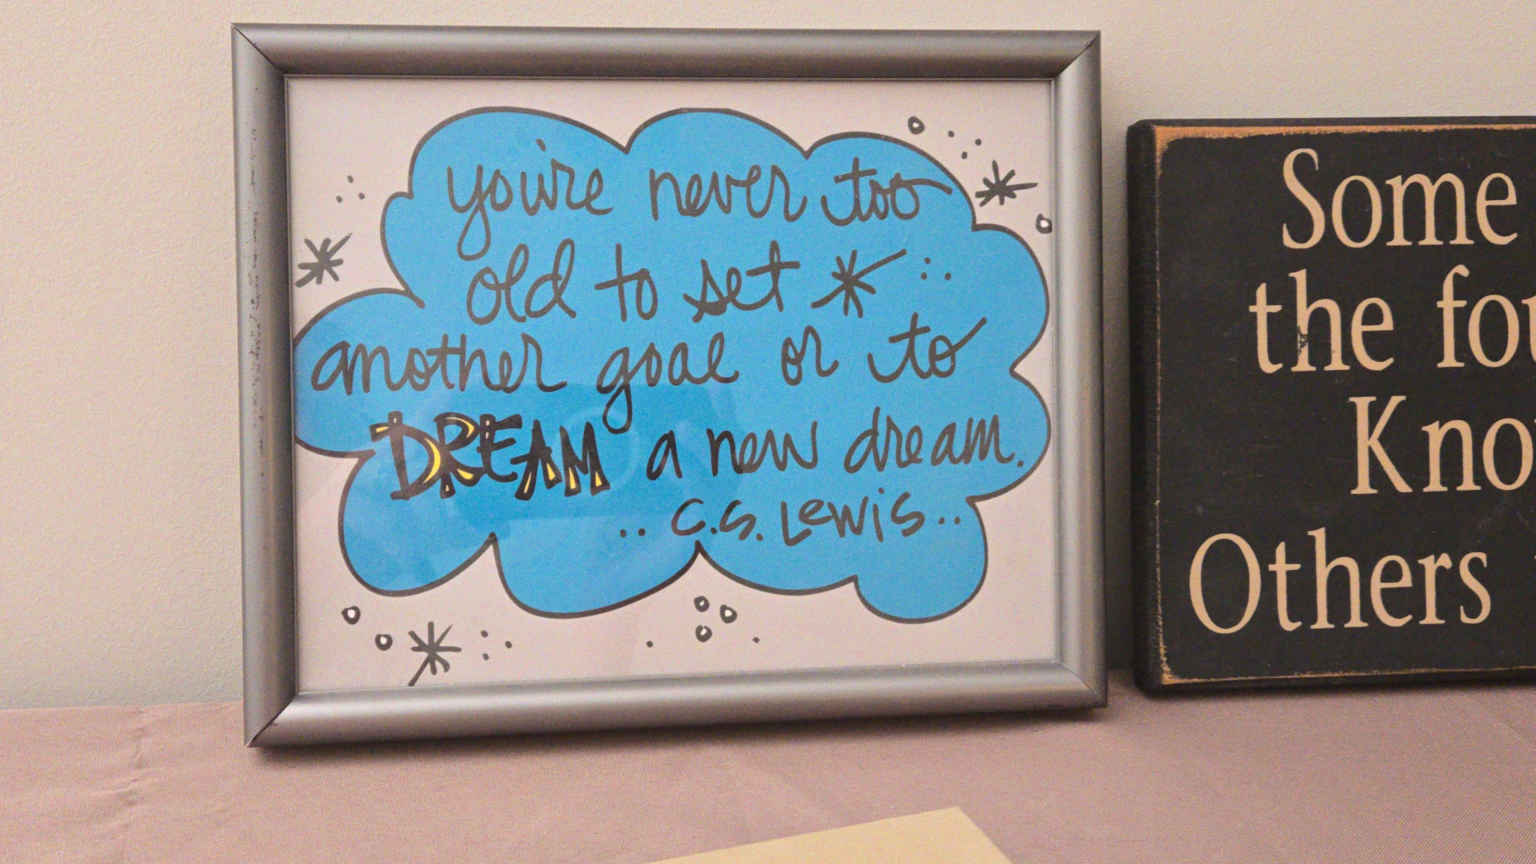 you're never too
old to set
another goal or to
DREAM a new dream.
.. C.S. Lewis..
Some
the
Others